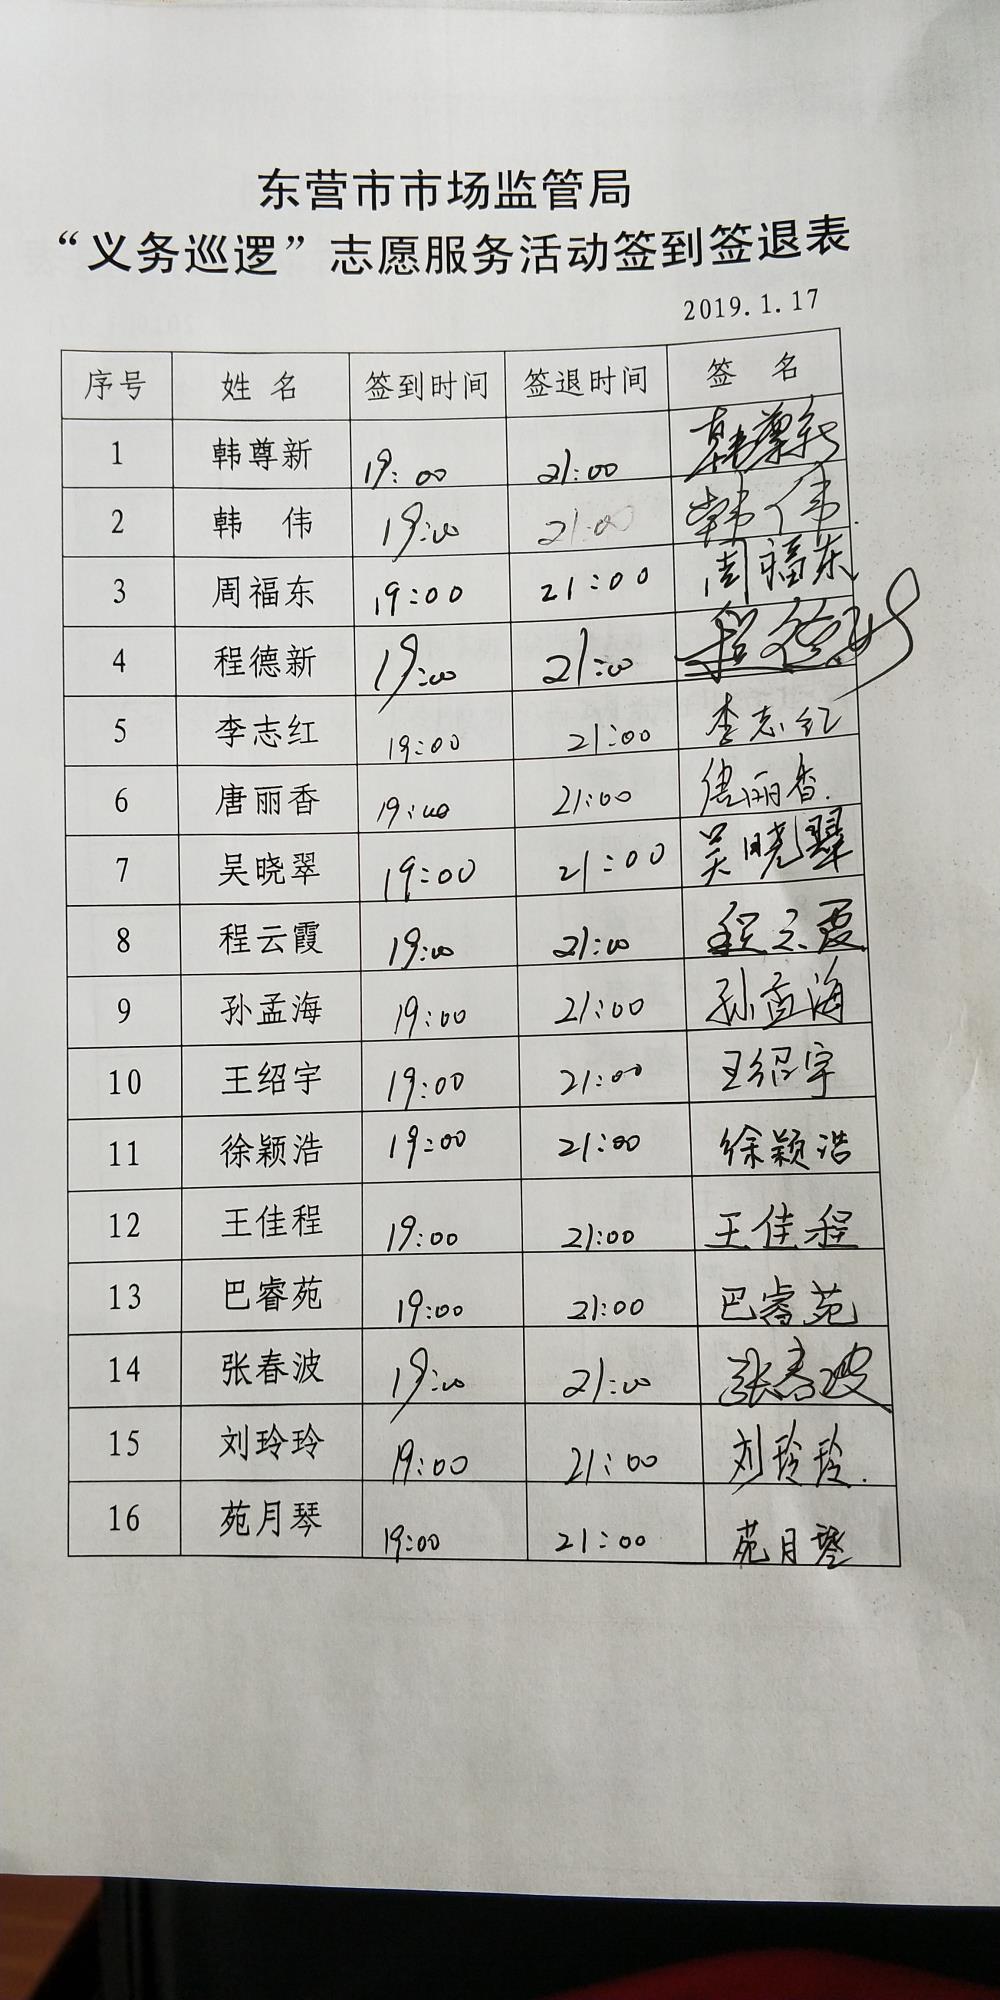 东营市市场监管局
“义务巡逻”志愿服务活动签到签退表
2019.1.17
序号 姓 名 签到时间 签退时间 签 名
1 韩尊新 19:00 21:00 韩尊新
2 韩 伟 19:00 21:00 韩伟
3 周福东 19:00 21:00 周福东
4 程德新 19:00 21:00 程德新
5 李志红 19:00 21:00 李志红
6 唐丽香 19:00 21:00 唐丽香
7 吴晓翠 19:00 21:00 吴晓翠
8 程云霞 19:00 21:00 程云霞
9 孙孟海 19:00 21:00 孙孟海
10 王绍宇 19:00 21:00 王绍宇
11 徐颖浩 19:00 21:00 徐颖浩
12 王佳程 19:00 21:00 王佳程
13 巴睿苑 19:00 21:00 巴睿苑
14 张春波 19:00 21:00 张春波
15 刘玲玲 19:00 21:00 刘玲玲.
16 苑月琴 19:00 21:00 苑月琴